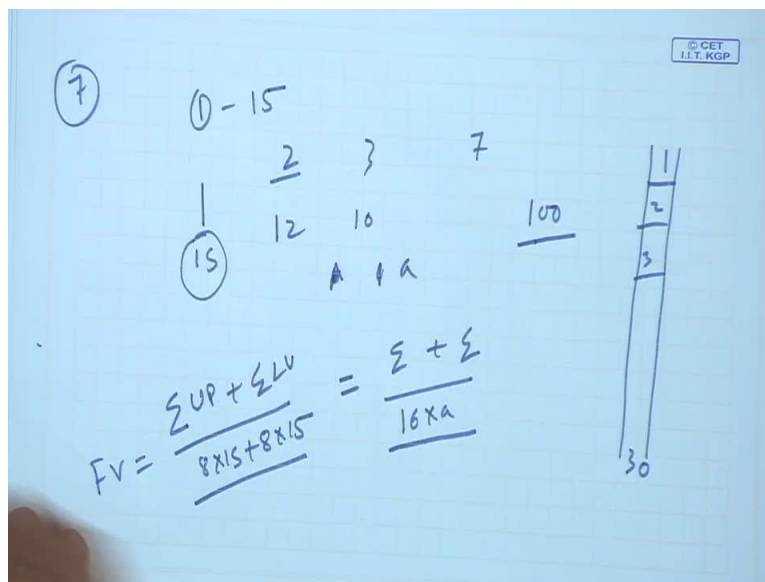 © CET
I.I.T. KGP
7
1 - 15
2 3 7
1 12 10 100
15
a
FV = ΣUP + ΣLV / 8x15+8x15 = Σ + Σ / 16xa
1
2
3
30